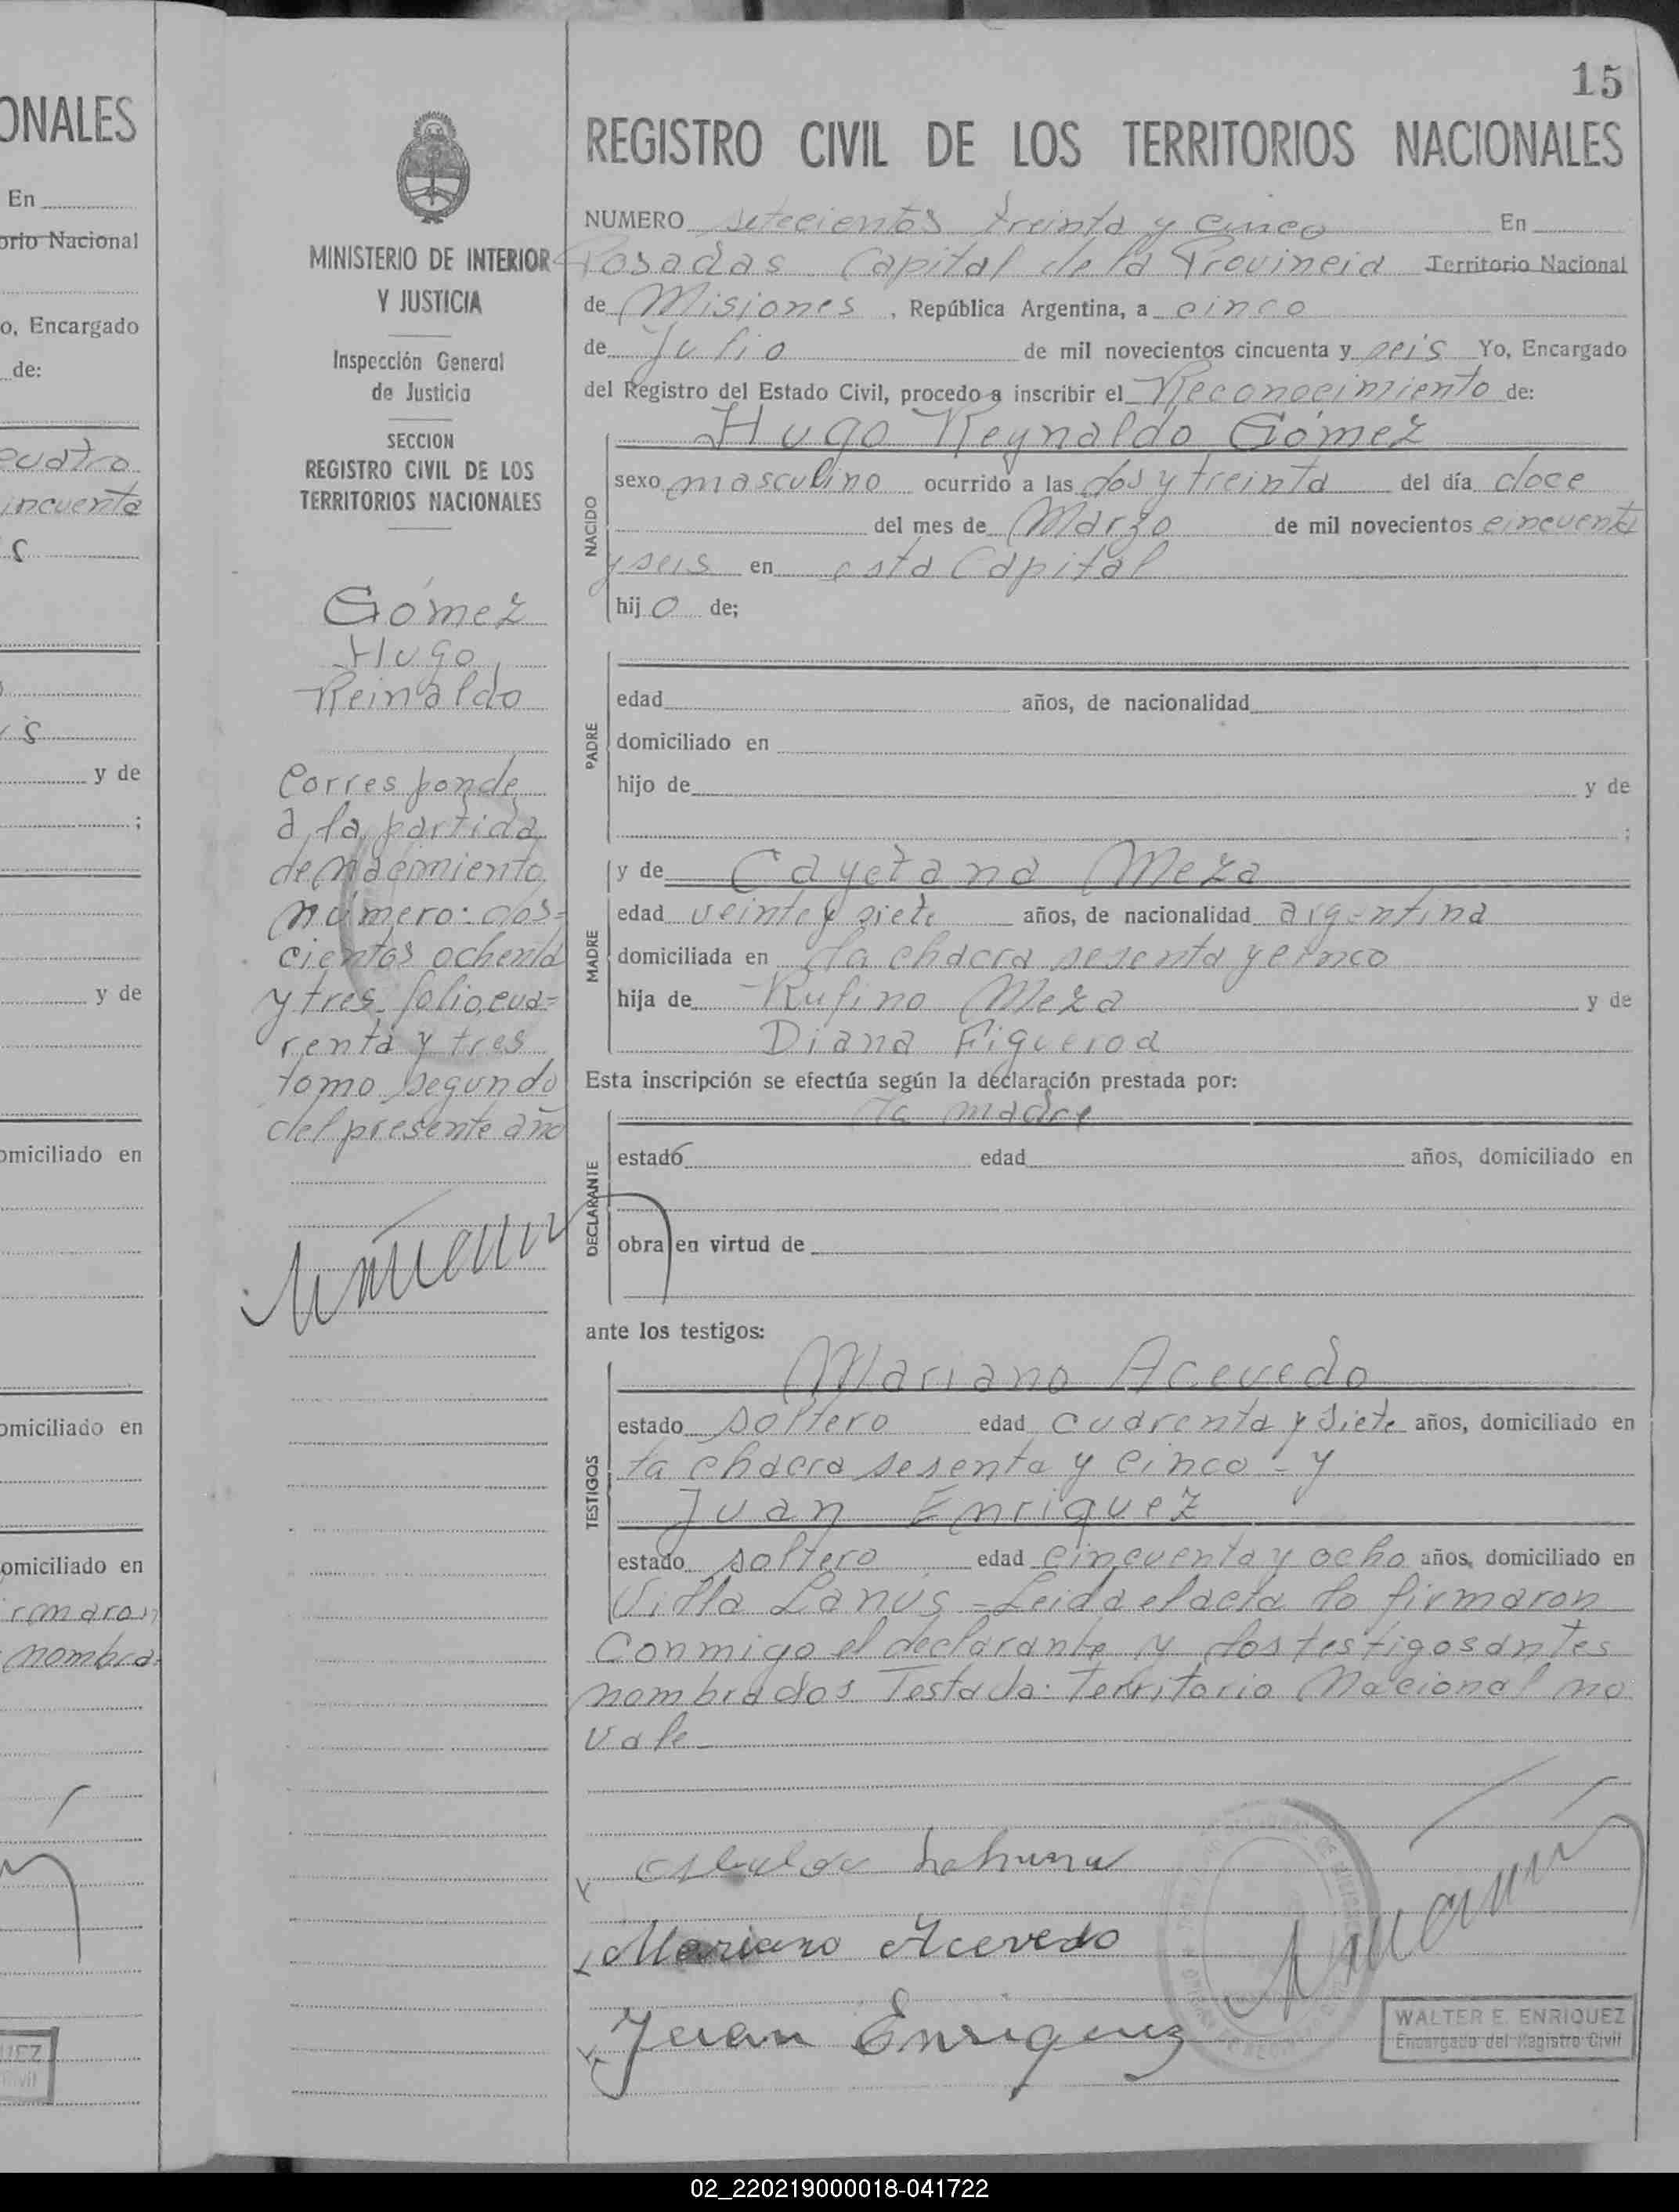 ONALES
En
orio Nacional
o, Encargado
de:
cuatro
incuenta
s
y de
;
y de
omiciliado en
omiciliado en
omiciliado en
rmaron
nombra=
MINISTERIO DE INTERIOR
Y JUSTICIA
Inspección General
de Justicia
SECCION
REGISTRO CIVIL DE LOS
TERRITORIOS NACIONALES
Gómez
Hugo
Reinaldo
Corresponde
a la partida
de nacimiento
número: dos=
cientos ochenta
y tres folio cua=
renta y tres
tomo segundo
del presente año
15
REGISTRO CIVIL DE LOS TERRITORIOS NACIONALES
NUMERO setecientos treinta y cinco En
Posadas Capital de la Provincia Territorio Nacional
de Misiones , República Argentina, a cinco
de Julio de mil novecientos cincuenta y seis Yo, Encargado
del Registro del Estado Civil, procedo a inscribir el Reconocimiento de:
Hugo Reynaldo Gómez
NACIDO
sexo masculino ocurrido a las dos y treinta del día doce
del mes de Marzo de mil novecientos cincuenta
y seis en esta Capital
hijo de;
PADRE
edad años, de nacionalidad
domiciliado en
hijo de y de
;
y de Cayetana Meza
MADRE
edad veinte y siete años, de nacionalidad argentina
domiciliada en la chacra sesenta y cinco
hija de Rufino Meza y de
Diana Figueroa
Esta inscripción se efectúa según la declaración prestada por:
la madre
DECLARANTE
estado edad años, domiciliado en
obra en virtud de
ante los testigos:
Mariano Acevedo
TESTIGOS
estado soltero edad cuarenta y siete años, domiciliado en
la chacra sesenta y cinco = y
Juan Enriquez
estado soltero edad cincuenta y ocho años, domiciliado en
Villa Lanús = Leida el acta la firmaron
conmigo el declarante y los testigos antes
nombrados Testado: Territorio Nacional no
vale
Mariano Acevedo
Juan Enriquez
WALTER E. ENRIQUEZ
Encargado del Registro Civil
02_220219000018-041722